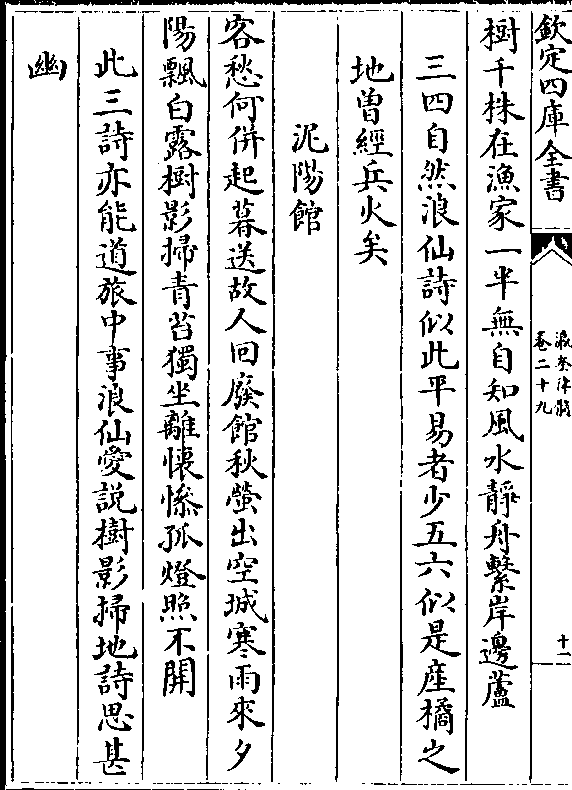 欽定四庫全書
瀛奎律髓
卷二十九
十一
樹千株在漁家一半無自知風水靜舟繫岸邊蘆
三四自然浪仙詩似此平易者少五六似是座橘之
地曽經兵火矣
泥陽館
客愁何併起暮送故人回廢館秋螢出空城寒雨來夕
陽飄白露樹影掃青苔獨坐離懷慘孤燈照不開
此三詩亦能道旅中事浪仙愛說樹影掃地詩思甚
幽